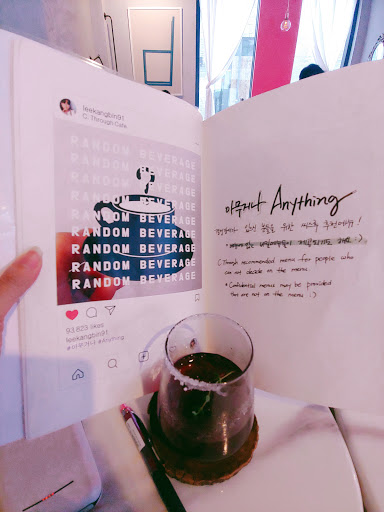 leekangbin91
C. Through Cafe
RANDOM BEVERAGE
RANDOM BEVERAGE
RANDOM BEVERAGE
RANDOM BEVERAGE
RANDOM BEVERAGE
RANDOM BEVERAGE
RANDOM BEVERAGE
RANDOM BEVERAGE
93,823 likes
leekangbin91
#아무거나 #Anything
아무거나 Anything
분들을 위한
C.Through recommended menu for people who
can not decide on the menu.
* Confidential menus may be provided
that are not on the menu :)